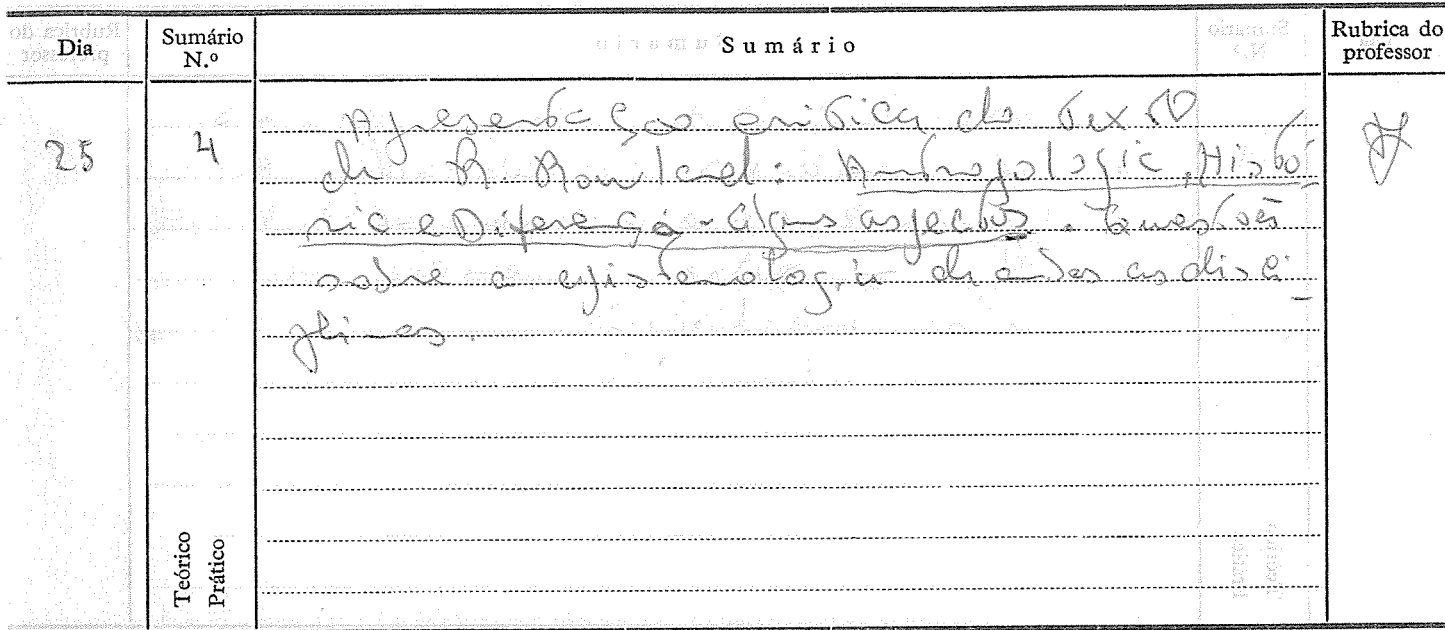 Dia
Sumário N.º
Sumário
Rubrica do professor
25
4
Apresentação crítica do texto
de R. Rowland: Antropologia, Histó-
ria e Diferença - alguns aspectos. Questões
sobre a epistemologia de ambas as disci-
plinas.
Teórico
Prático